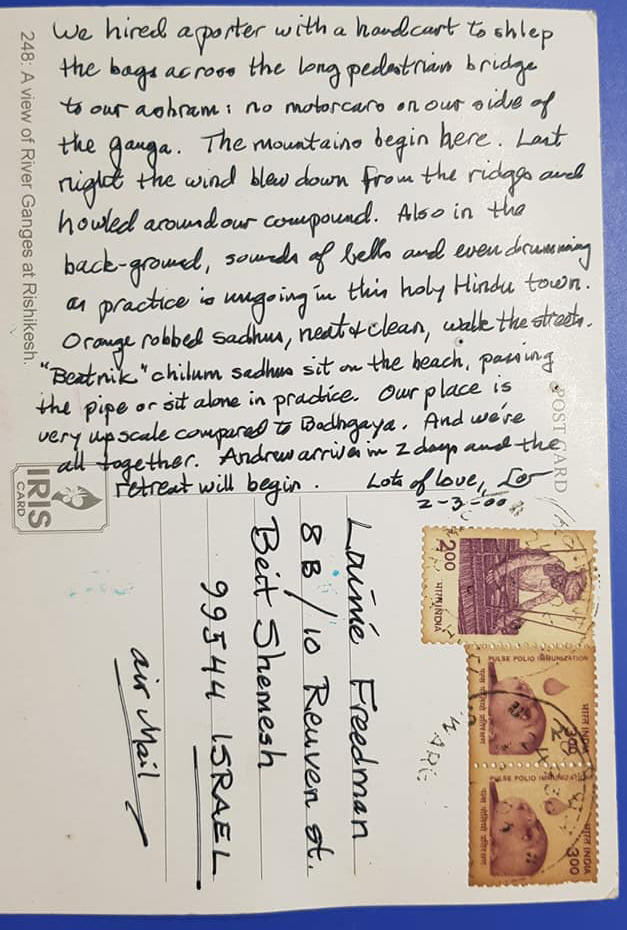 We hired a porter with a handcart to shlep
the bags across the long pedestrian bridge
to our ashram: no motorcars on our side of
the ganga. The mountains begin here. Last
night the wind blew down from the ridges and
howled around our compound. Also in the
back-ground, sounds of bells and even drumming
as practice is ongoing in this holy Hindu town.
Orange robbed sadhus, neat & clean, walk the streets.
"Beatnik" chilum sadhus sit on the beach, passing
the pipe or sit alone in practice. Our place is
very upscale compared to Bodhgaya. And we're
all together. Andrew arrives in 2 days and the
retreat will begin. Lots of love,
2-3-00
248: A view of River Ganges at Rishikesh.
IRIS
CARD
POST CARD
Laimie Freedman
8B/10 Reuven st.
Beit Shemesh
99544 ISRAEL
air Mail
200
भारत INDIA
PULSE POLIO IMMUNIZATION
भारत INDIA
300
PULSE POLIO IMMUNIZATION
भारत INDIA
300